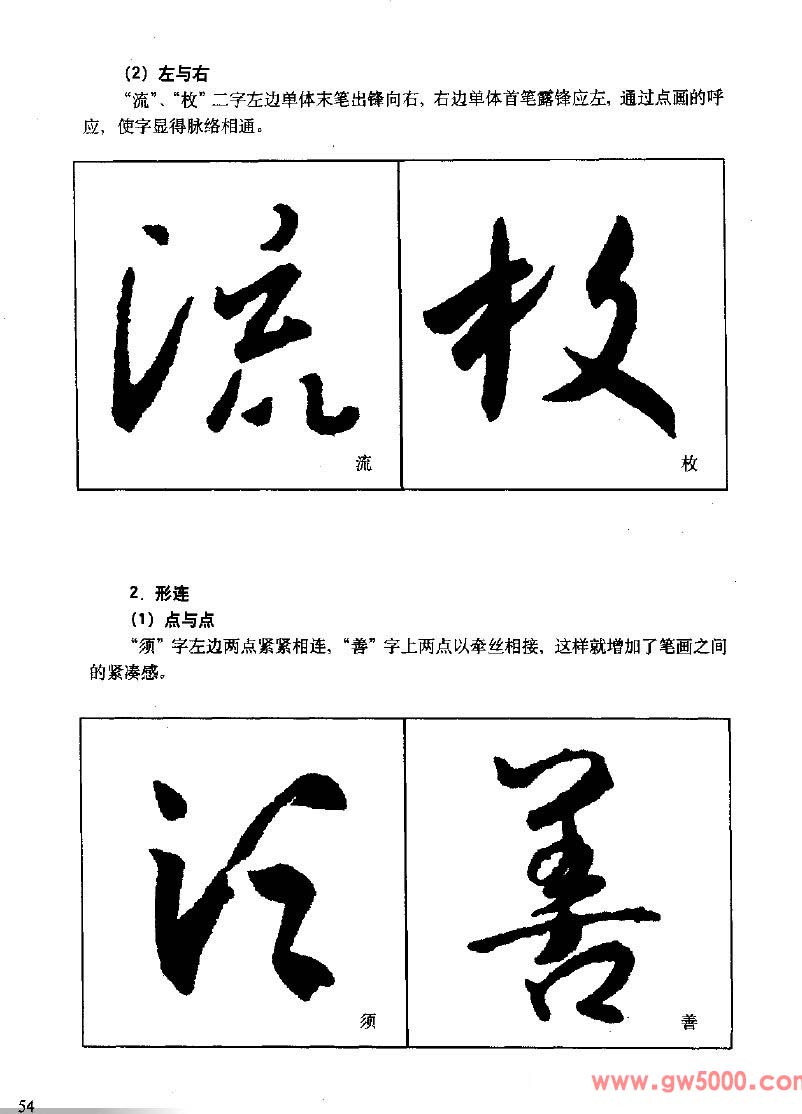 (2) 左与右
“流”、“枚”二字左边单体末笔出锋向右，右边单体首笔露锋应左，通过点画的呼
应，使字显得脉络相通。
流 枚
流 枚
2. 形连
(1) 点与点
“须”字左边两点紧紧相连，“善”字上两点以牵丝相接，这样就增加了笔画之间
的紧凑感。
须 善
须 善
www.gw5000.com
54